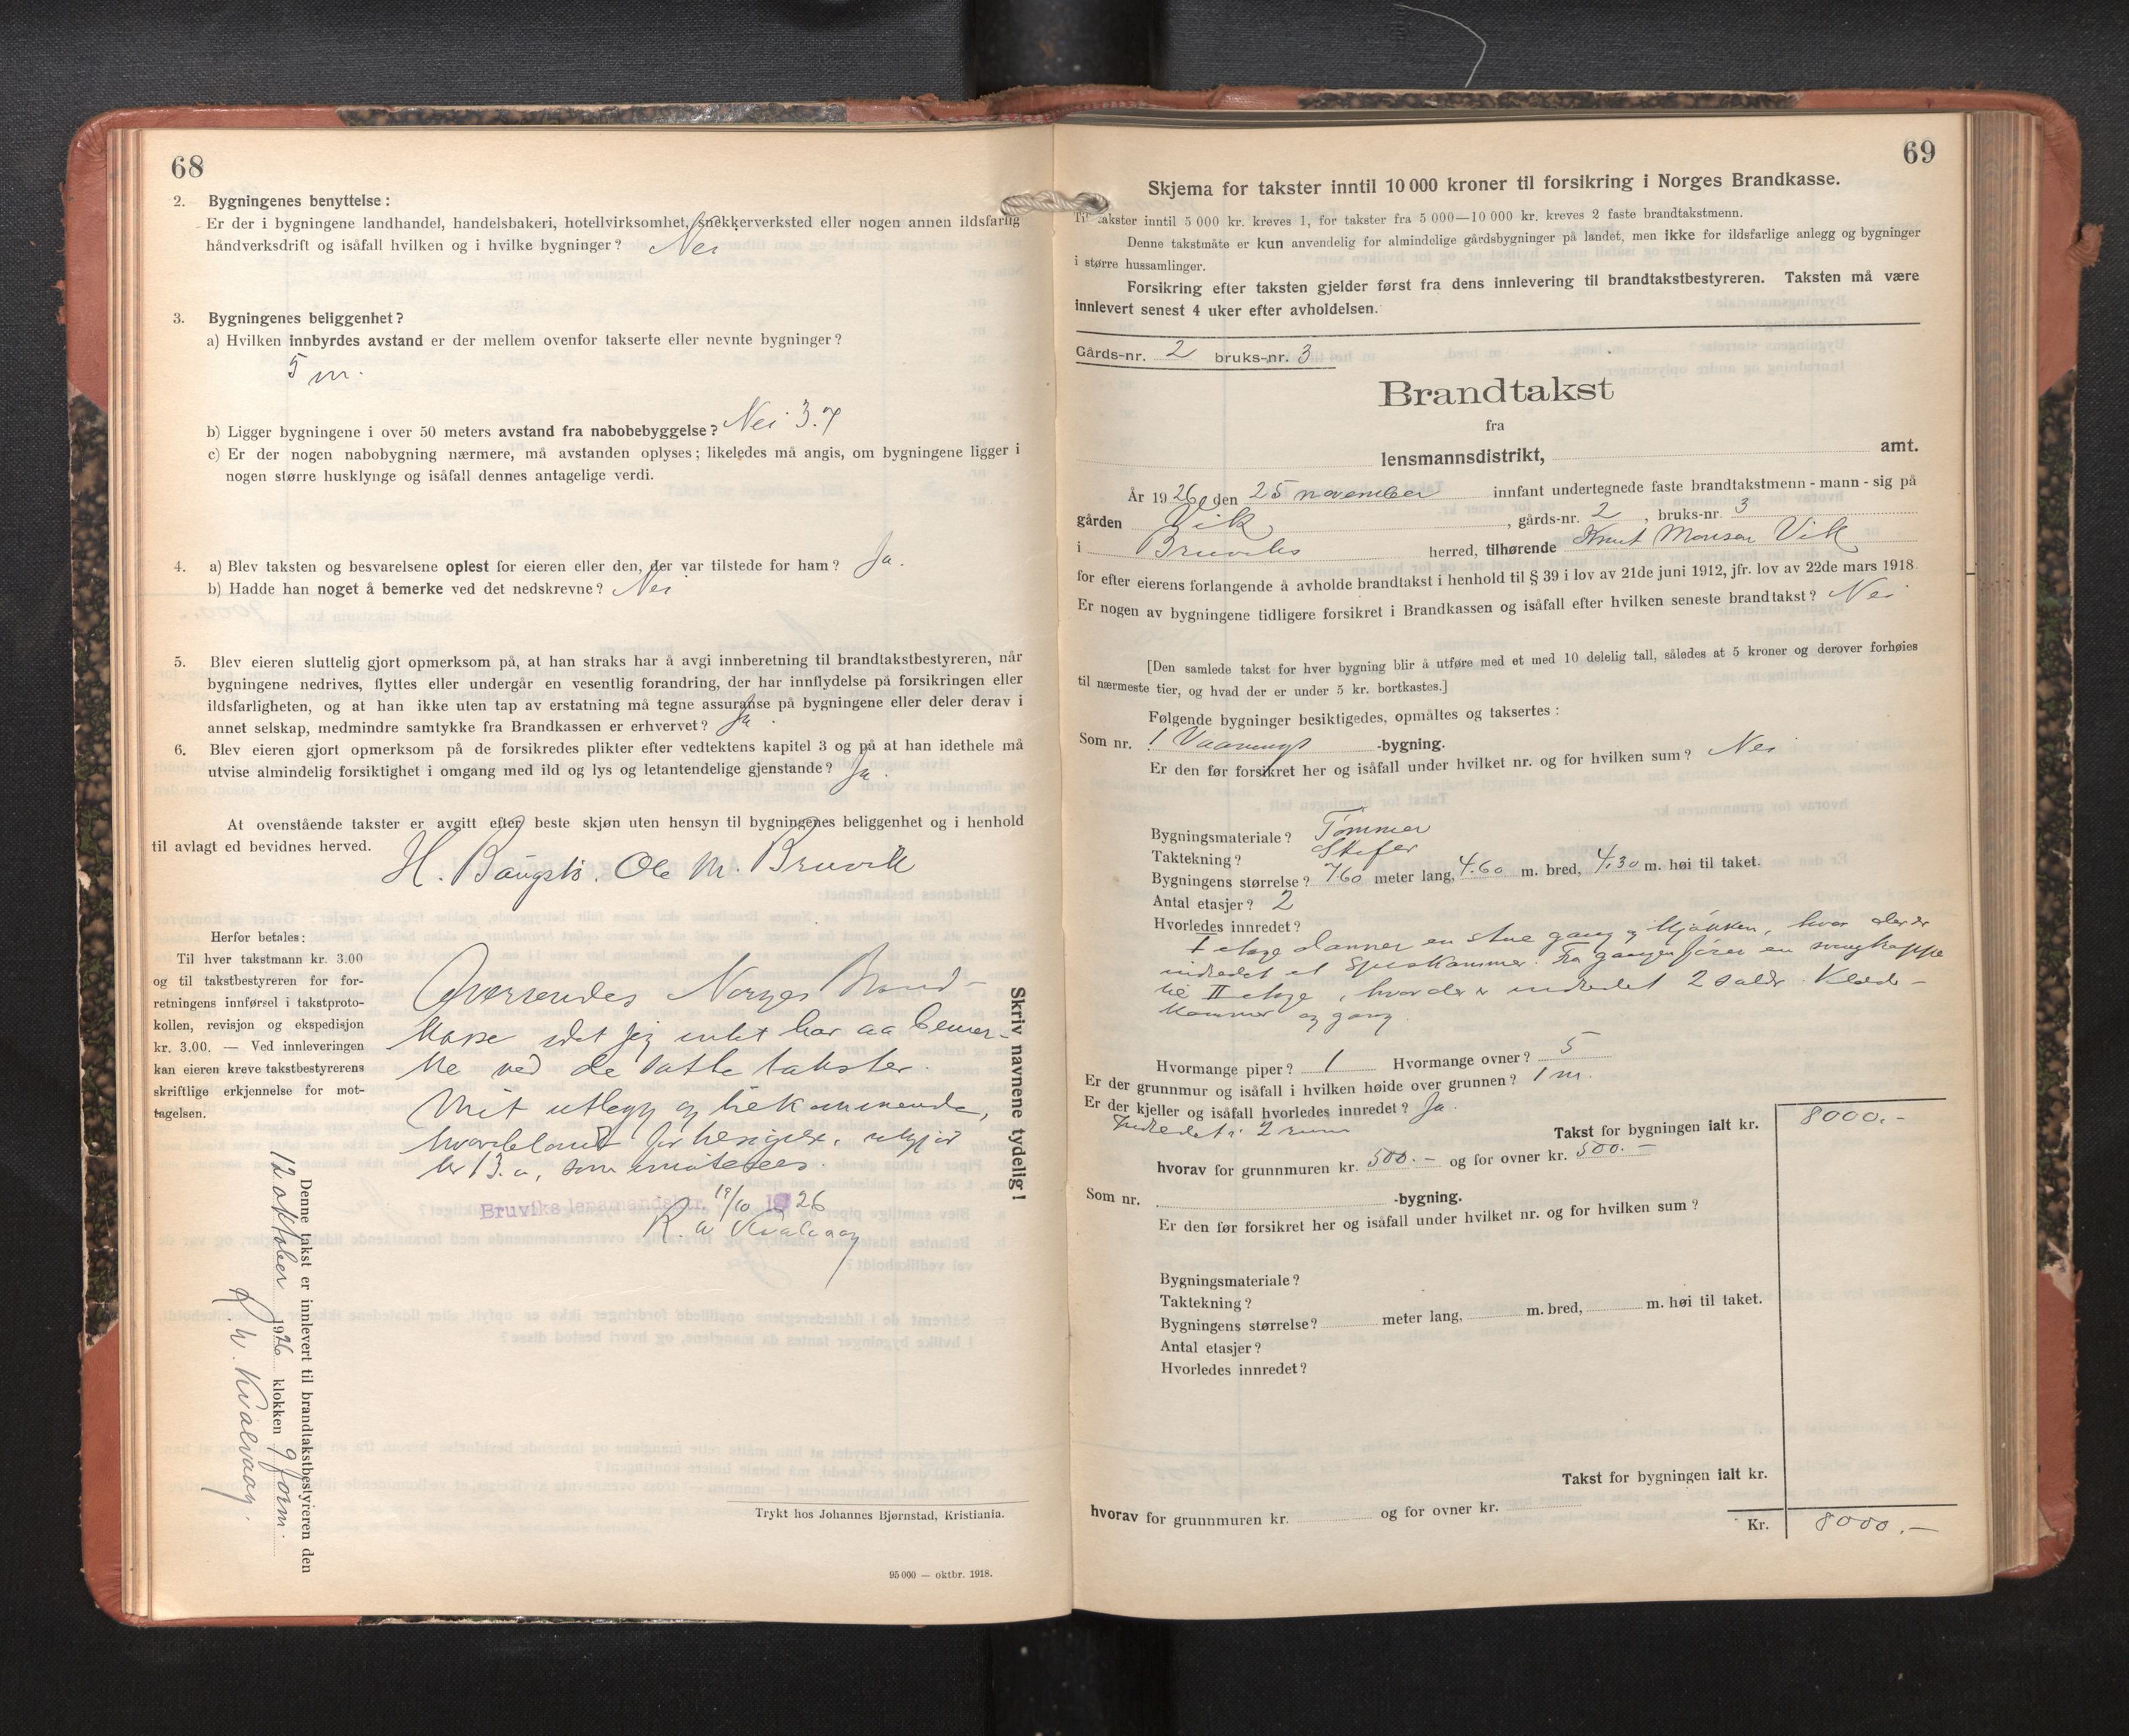 68
2. Bygningenes benyttelse:
Er der i bygningene landhandel, handelsbakeri, hotellvirksomhet, snekkerverksted eller nogen annen ildsfarlig
håndverksdrift og isåfall hvilken og i hvilke bygninger? Nei
3. Bygningenes beliggenhet?
a) Hvilken innbyrdes avstand er der mellem ovenfor takserte eller nevnte bygninger?
5 m.
b) Ligger bygningene i over 50 meters avstand fra nabobebyggelse? Nei 3.7
c) Er der nogen nabobygning nærmere, må avstanden oplyses; likeledes må angis, om bygningene ligger i
nogen større husklynge og isåfall dennes antagelige verdi.
4. a) Blev taksten og besvarelsene oplest for eieren eller den, der var tilstede for ham? Ja.
b) Hadde han noget å bemerke ved det nedskrevne? Nei
5. Blev eieren sluttelig gjort opmerksom på, at han straks har å avgi innberetning til brandtakstbestyreren, når
bygningene nedrives, flyttes eller undergår en vesentlig forandring, der har innflydelse på forsikringen eller
ildsfarligheten, og at han ikke uten tap av erstatning må tegne assuranse på bygningene eller deler derav i
annet selskap, medmindre samtykke fra Brandkassen er erhvervet? Ja.
6. Blev eieren gjort opmerksom på de forsikredes plikter efter vedtektens kapitel 3 og på at han idethele må
utvise almindelig forsiktighet i omgang med ild og lys og letantendelige gjenstande? Ja.
At ovenstående takster er avgitt efter beste skjøn uten hensyn til bygningenes beliggenhet og i henhold
til avlagt ed bevidnes herved.
H. Ole M. Bruvik
Herfor betales:
Til hver takstmann kr. 3.00
og til takstbestyreren for for-
retningens innførsel i takstproto-
kollen, revisjon og ekspedisjon
kr. 3.00. — Ved innleveringen
kan eieren kreve takstbestyrerens
skriftlige erkjennelse for mot-
tagelsen.
Oversendes Norges Brand-
kasse idet jeg intet har aa bemer-
ke ved de satte takster.
Mit utlegg og tilkommende,
hvoriblandt for utgjør
kr 13. som
Bruviks lensmandskr. 19/10 1926
R. W. Kvalvaag
Skriv navnene tydelig!
Denne takst er innlevert til brandtakstbestyreren den
12 oktober 1926 klokken 9 form.
R. W. Kvalvaag.
Trykt hos Johannes Bjørnstad, Kristiania.
95 000 — oktbr. 1918.
69
Skjema for takster inntil 10 000 kroner til forsikring i Norges Brandkasse.
Til takster inntil 5 000 kr. kreves 1, for takster fra 5 000—10 000 kr. kreves 2 faste brandtakstmenn.
Denne takstmåte er kun anvendelig for almindelige gårdsbygninger på landet, men ikke for ildsfarlige anlegg og bygninger
i større hussamlinger.
Forsikring efter taksten gjelder først fra dens innlevering til brandtakstbestyreren. Taksten må være
innlevert senest 4 uker efter avholdelsen.
Gårds-nr. 2 bruks-nr. 3
Brandtakst
fra
lensmannsdistrikt, amt.
År 1926 den 25 november innfant undertegnede faste brandtakstmenn - mann - sig på
gården Vik, gårds-nr. 2, bruks-nr. 3
i Bruviks herred, tilhørende Knut Monsen Vik
for efter eierens forlangende å avholde brandtakst i henhold til § 39 i lov av 21de juni 1912, jfr. lov av 22de mars 1918.
Er nogen av bygningene tidligere forsikret i Brandkassen og isåfall efter hvilken seneste brandtakst? Nei
[Den samlede takst for hver bygning blir å utføre med et med 10 delelig tall, således at 5 kroner og derover forhøies
til nærmeste tier, og hvad der er under 5 kr. bortkastes.]
Følgende bygninger besiktigedes, opmåltes og taksertes:
Som nr. 1 Vaanings -bygning.
Er den før forsikret her og isåfall under hvilket nr. og for hvilken sum? Nei
Bygningsmateriale? Tømmer
Taktekning? Skifer
Bygningens størrelse? 7.60 meter lang, 4.60 m. bred, 4.30 m. høi til taket.
Antal etasjer? 2
Hvorledes innredet?
I etage danner en stue gang og kjøkken, hvor der er
indredet et Spiskammer. Fra gangen fører en svingtrappe
til II etage, hvor der er indredet 2 saler. Klæd-
kammer og gang.
Hvormange piper? 1 Hvormange ovner? 5
Er der grunnmur og isåfall i hvilken høide over grunnen? 1 m.
Er der kjeller og isåfall hvorledes innredet? Ja.
Indredet i 2 rum
Takst for bygningen ialt kr. 8000.-
hvorav for grunnmuren kr. 500.- og for ovner kr. 500.-
Som nr. -bygning.
Er den før forsikret her og isåfall under hvilket nr. og for hvilken sum?
Bygningsmateriale?
Taktekning?
Bygningens størrelse? meter lang, m. bred, m. høi til taket.
Antal etasjer?
Hvorledes innredet?
Takst for bygningen ialt kr.
hvorav for grunnmuren kr. og for ovner kr.
Kr. 8000.-